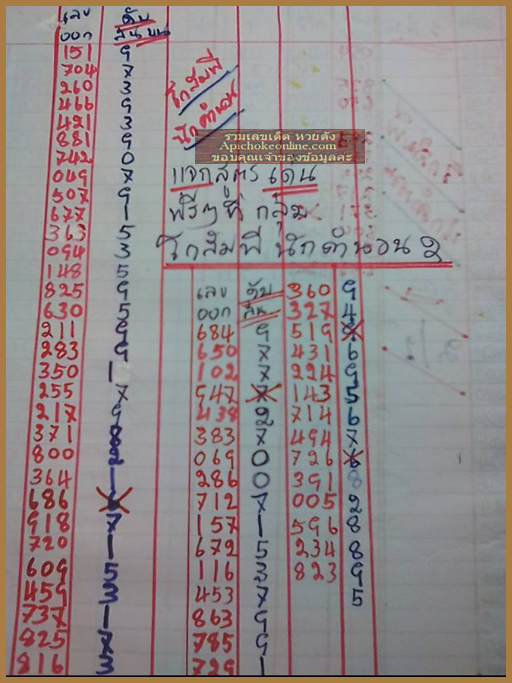 เลข ดับ
ออก สิบบน
151 9
704 7
260 3
466 9
421 3
881 9
742 0
049 7
507 9
677 1
363 5
094 3
148 5
825 9
630 5
211 9
283 9
350 1
255 7
217 9
371
800 2
364 1
686
918 7
720 1
609 5
459 3
737 1
825 7
816 3
โกสัมพี
นักคำนวน
รวมเลขเด็ด หวยดัง
Apichokeonline.com
ขอบคุณเจ้าของข้อมูลค่ะ
แจกสูตรเด่น
ฟรีๆที่กลุ่ม
โกสัมพีนักคำนวน 2
เลข ดับ
ออก
684 9
650 7
102 7
947 7
438 2
383 7
069 0
286 0
712 7
157 1
672 5
116 3
453 7
863 9
785 9
729 1
360 9
327 4
519
431 6
224 9
143 5
714 6
494 7
726
391 8
005 2
596 8
234 8
823 9
5